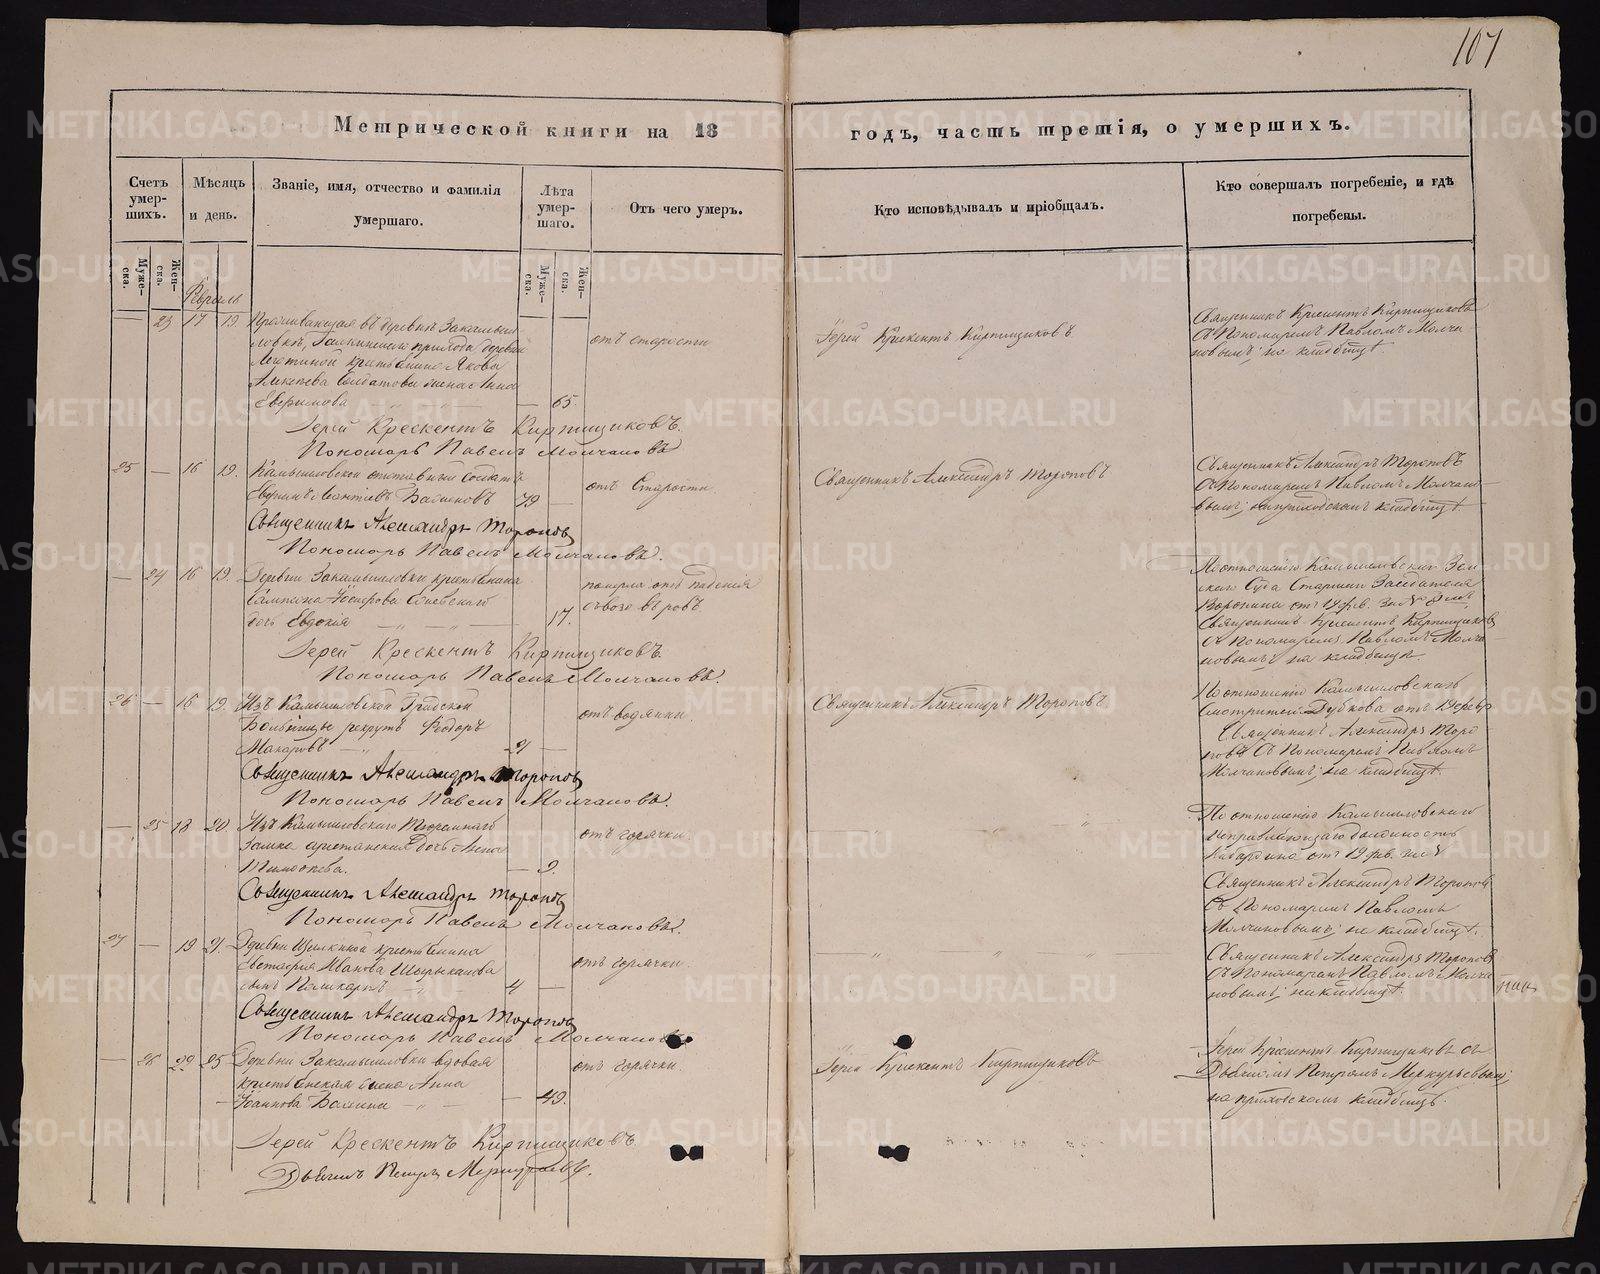 107
Метрической книги на 18 годъ, часть третія, о умершихъ.
Счетъ умер-шихъ.
Мѣсяцъ и день.
Званіе, имя, отчество и фамилія умершаго.
Лѣта умер-шаго.
Отъ чего умеръ.
Кто исповѣдывалъ и пріобщалъ.
Кто совершалъ погребеніе, и гдѣ погребены.
Муже-ска.
Жен-ска.
Муже-ска.
Жен-ска.
Февраль
— 23 17 19. Проживающая въ деревнѣ
прихода деревни
крестьянина Якова
жена Анна
— 65.
отъ старости
Іерей Крискентъ Кирпищиковъ
Священникъ Крискентъ Кирпищиковъ
съ Пономаремъ Павломъ Молча-
новымъ; на кладбищѣ.
Іерей Крескентъ Кирпищиковъ.
Пономарь Павелъ Молчановъ
25 — 16 19. Камышловской солдатъ
79 —
отъ Старости
Священникъ Александръ Тороповъ
Священникъ Александръ Тороповъ
съ Пономаремъ Павломъ Молчано-
вымъ; на приходскомъ кладбищѣ.
Священникъ Александръ Тороповъ
Пономарь Павелъ Молчановъ.
— 24 16 19. Деревни Закамышловки крестьянина
дочь Евдокія — 17.
померла отъ паденія
съ возо въ ровъ
По отношенію Камышловскаго Зем-
скаго Суда Старшаго Засѣдателя
Воронина отъ 19 фев. за №
Священникъ Крискентъ Кирпищиковъ
съ Пономаремъ Павломъ Молча-
новымъ на кладбищѣ.
Іерей Крескентъ Кирпищиковъ.
Пономарь Павелъ Молчановъ.
26 — 16 19. Изъ Камышловской Градской
Больницы рекрутъ Феодоръ
Макаровъ — 21 —
отъ водянки.
Священникъ Александръ Тороповъ
По отношенію Камышловскаго
Смотрителя Дубкова отъ 19 февр.
Священникъ Александръ Торо-
повъ съ Пономаремъ Павломъ
Молчановымъ; на кладбищѣ.
Священникъ Александръ Тороповъ
Пономарь Павелъ Молчановъ.
— 25 18 20 Изъ Камышловскаго Тюремнаго
замка арестантская дочь Анна
Тимофеева. — 9.
отъ горячки.
— „ — „
По отношенію Камышловскаго
Исправляющаго должность
отъ 19 фев. за №
Священникъ Александръ Тороповъ
съ Пономаремъ Павломъ
Молчановымъ; на кладбищѣ.
Священникъ Александръ Тороповъ
Пономарь Павелъ Молчановъ.
27 — 19 21. Деревни крестьянина
Иванова
сынъ Поликарпъ 4 —
отъ горячки.
— „ — „ — „ —
Священникъ Александръ Тороповъ
съ Пономаремъ Павломъ Молча-
новымъ; на кладбищѣ.
Священникъ Александръ Тороповъ
Пономарь Павелъ Молчановъ
— 26 22 25 Деревни Закамышловки вдовая
крестьянская жена Анна
Іоаннова — 49.
отъ горячки.
Іерей Крискентъ Кирпищиковъ
Іерей Крискентъ Кирпищиковъ съ
Дьячкомъ Петромъ Меркурьевымъ;
на приходскомъ кладбищѣ.
Іерей Крескентъ Кирпищиковъ.
Дьячекъ Петръ Меркурьевъ.
METRIKI.GASO-URAL.RU